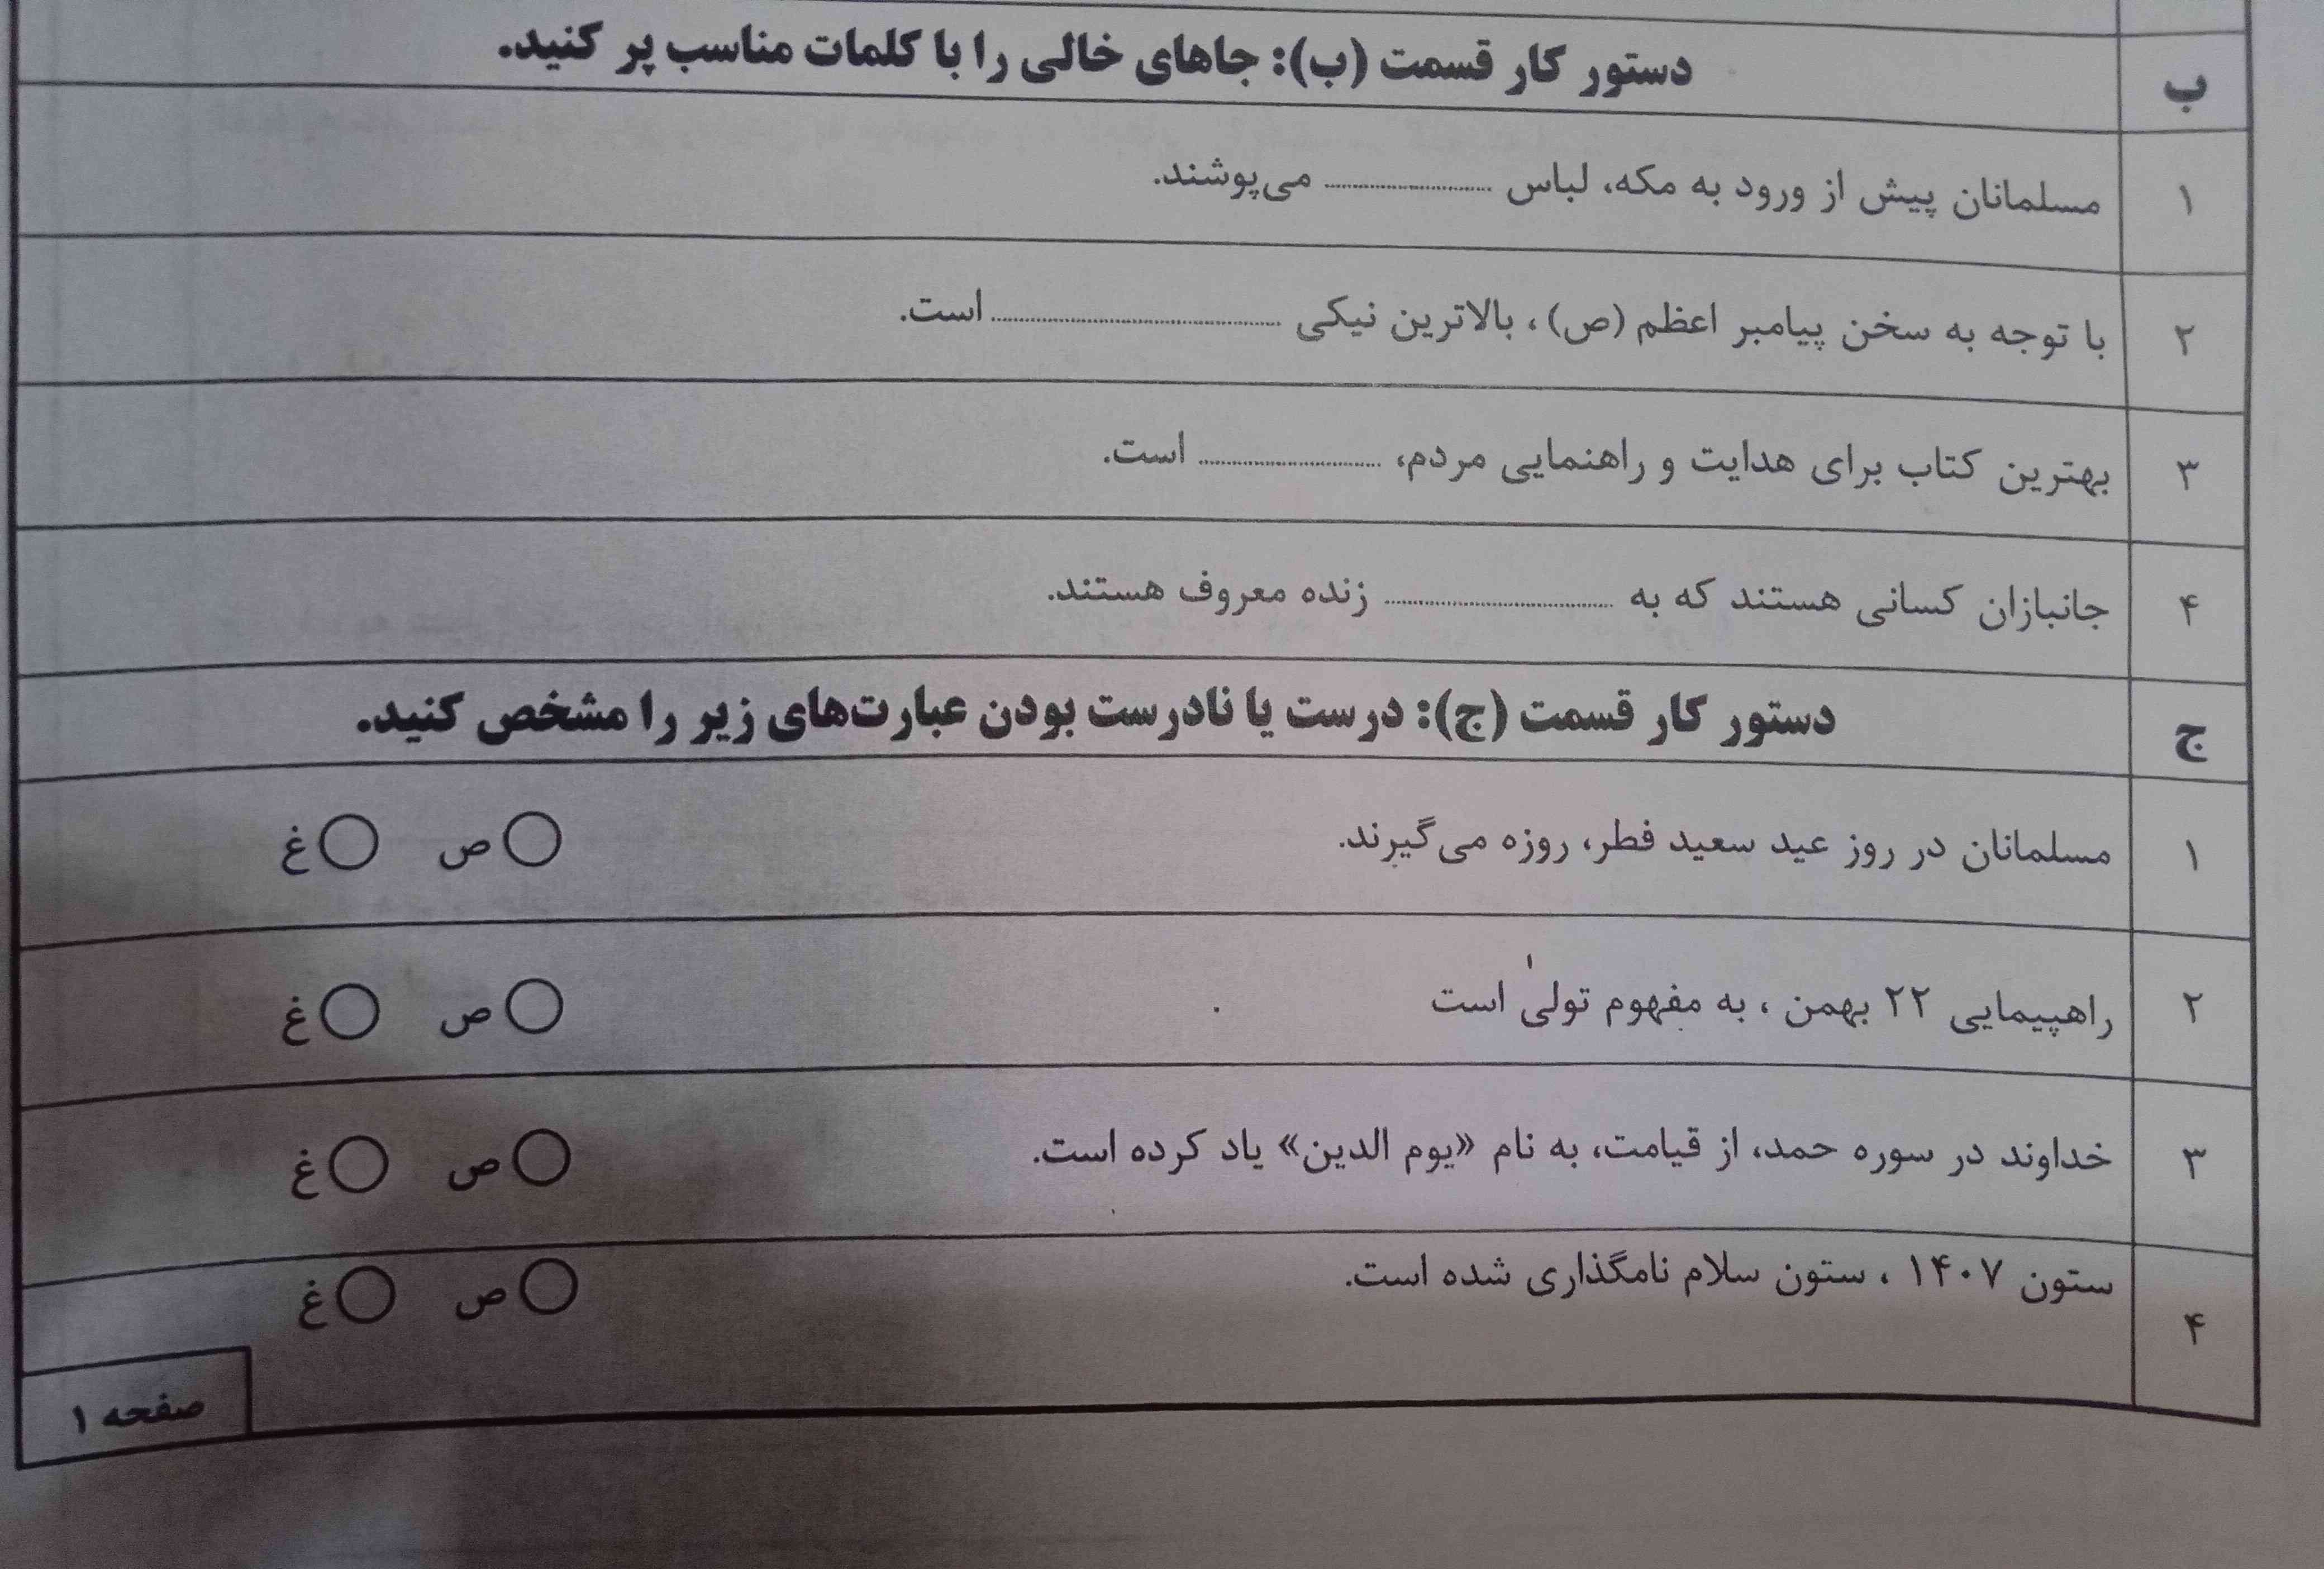 ب
دستور کار قسمت (ب): جاهای خالی را با کلمات مناسب پر کنید.
۱
مسلمانان پیش از ورود به مکه، لباس .................... می‌پوشند.
۲
با توجه به سخن پیامبر اعظم (ص)، بالاترین نیکی .................... است.
۳
بهترین کتاب برای هدایت و راهنمایی مردم، .................... است.
۴
جانبازان کسانی هستند که به .................... زنده معروف هستند.
ج
دستور کار قسمت (ج): درست یا نادرست بودن عبارت‌های زیر را مشخص کنید.
۱
مسلمانان در روز عید سعید فطر، روزه می‌گیرند. ص غ
۲
راهپیمایی ۲۲ بهمن ، به مفهوم تولی است ص غ
۳
خداوند در سوره حمد، از قیامت، به نام «یوم الدین» یاد کرده است. ص غ
۴
ستون ۱۴۰۷ ، ستون سلام نامگذاری شده است. ص غ
صفحه ۱